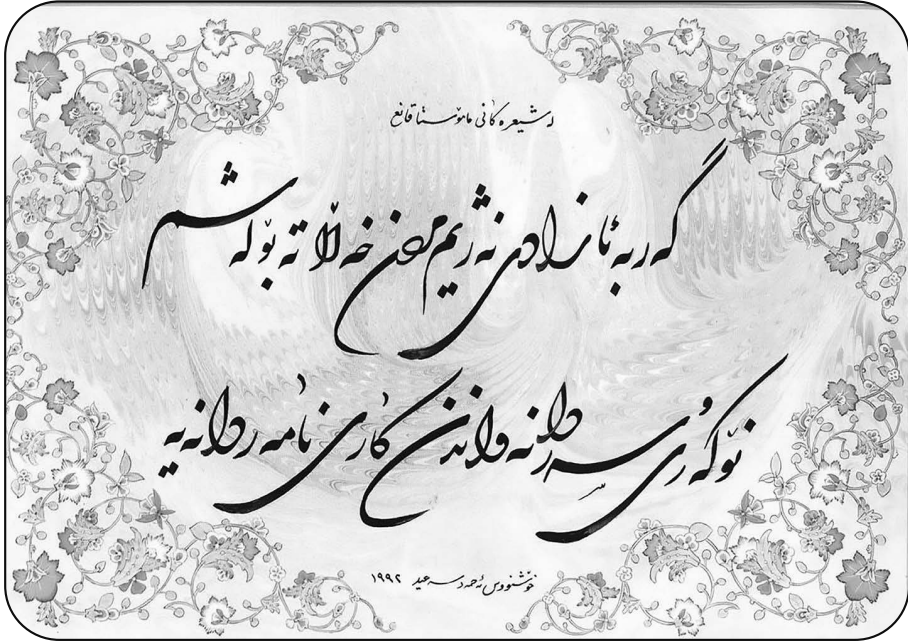 لە شیعرەکانی مامۆستا قانع
گەر بە ئازادی نەژیم مردن خەڵاتە بۆ لەشم
نۆکەری و سەر دانەواندن کاری نامەردانەیە
خۆشنووس ئەحمەد سەعید ١٩٩٢